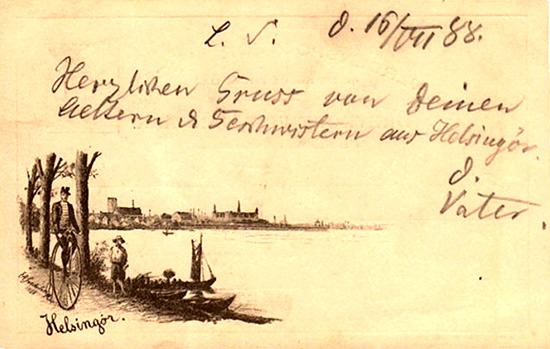 L. S. d. 16/VII 88.
Herzlichen Gruss von Deinen
Aeltern & Geschwistern aus Helsingör.
d.
Vater.
Helsingör.